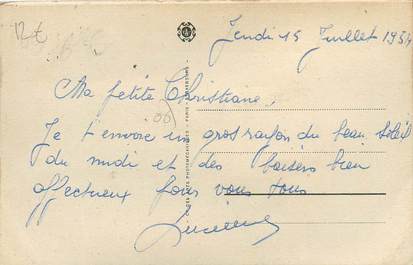 12€
Jeudi 15 Juillet 1954
Ma petite Christiane,
Je t'envoie un gros rayon du beau soleil
du midi et des baisers bien
affectueux pour vous tous
Lucienne